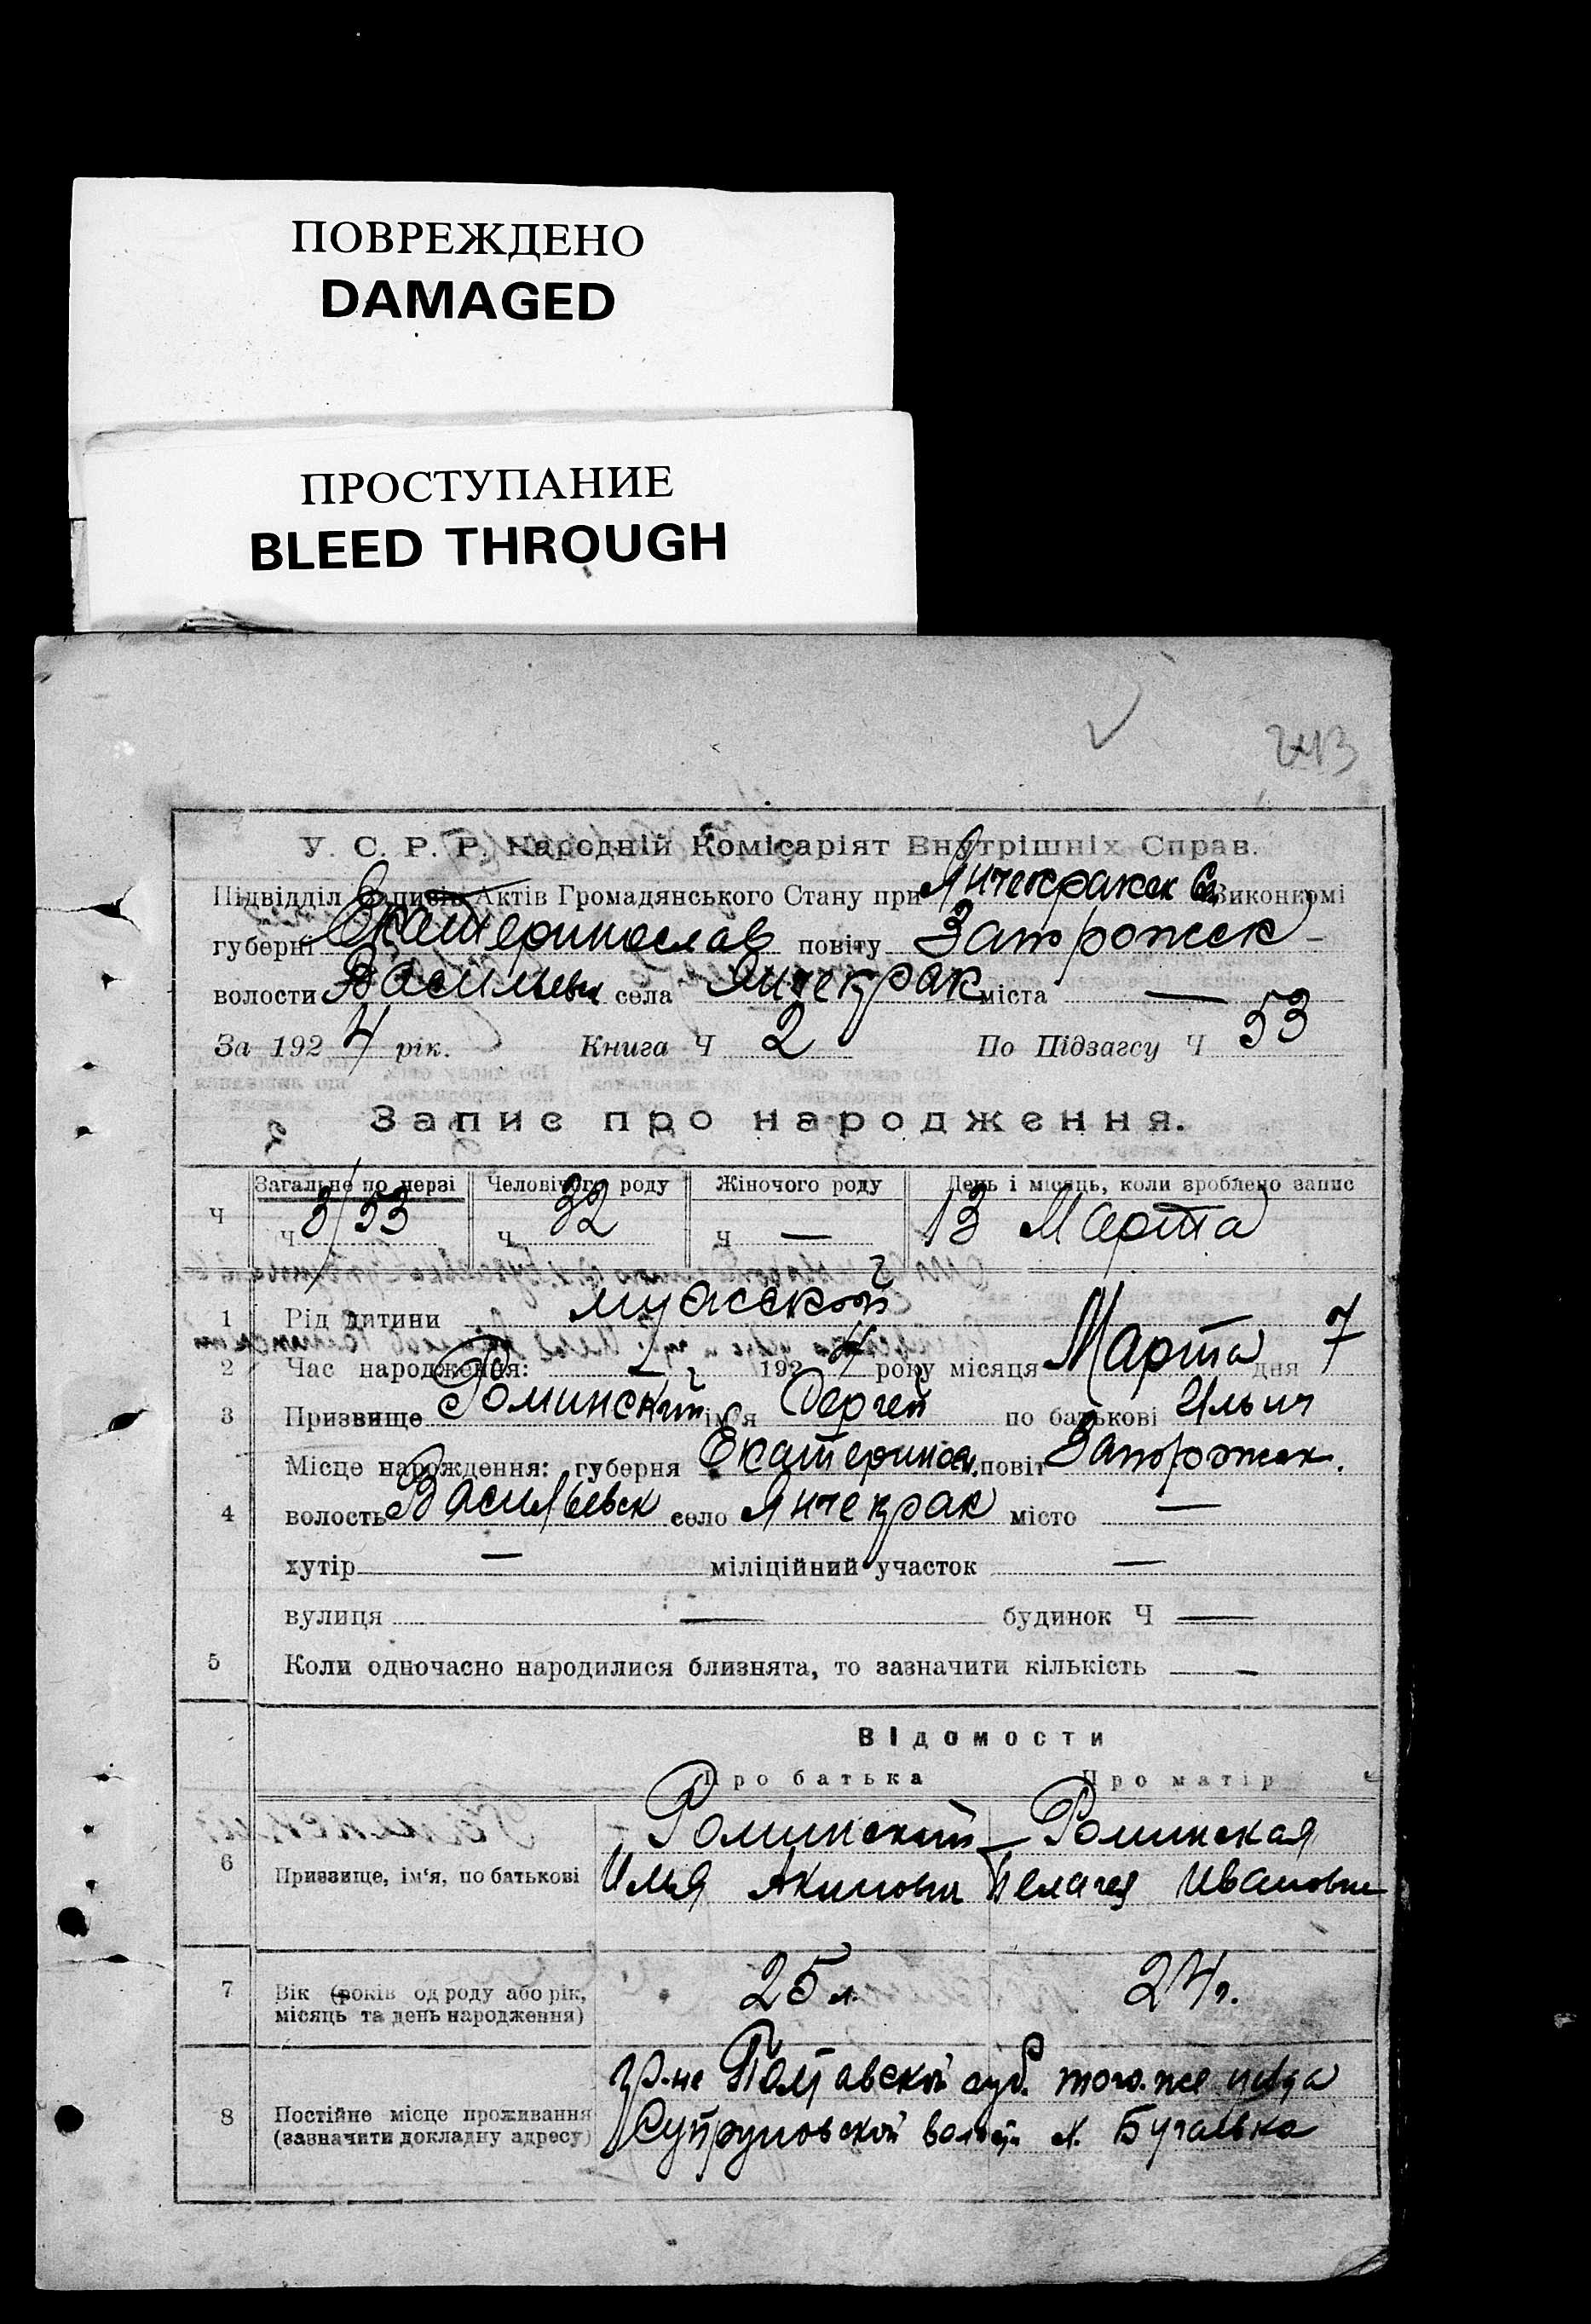 ПОВРЕЖДЕНО
DAMAGED
ПРОСТУПАНИЕ
BLEED THROUGH
243
У. С. Р. Р. Народній Комісаріят Внутрішніх Справ.
Підвідділ Записів Актів Громадянського Стану при Янчекракск Виконкомі
губерні Екатеринослав повіту Запорожск
волости Васильев села Янчекрак міста —
За 1924 рік. Книга Ч 2 По Підзагсу Ч 53
Запис про народження.
Ч Загальне по черзі Человічого роду Жіночого роду День і місяць, коли зроблено запис
Ч 3/53 Ч 32 Ч — 13 Марта
1 Рід дитини мужской
2 Час народження: 1924 року місяця Марта дня 7
3 Призвище Роминский ім'я Сергей по батькові Ильич
Місце нарождення: губерня Екатеринос. повіт Запорожск.
4 волость Васильевск село Янчекрак місто —
хутір — міліційний участок —
вулиця — будинок Ч —
5 Коли одночасно народилися близнята, то зазначити кількість —
Відомости
Про батька Про матір
Роминский — Роминская
6 Призвище, ім'я, по батькові Илья Акимович Пелагея Ивановна
7 Вік (років од роду або рік, 25 л. 24 г.
місяць та день народження)
гр-не Полтавской губ. того-же уезда
8 Постійне місце проживання
(зазначити докладну адресу) Супруновской волости